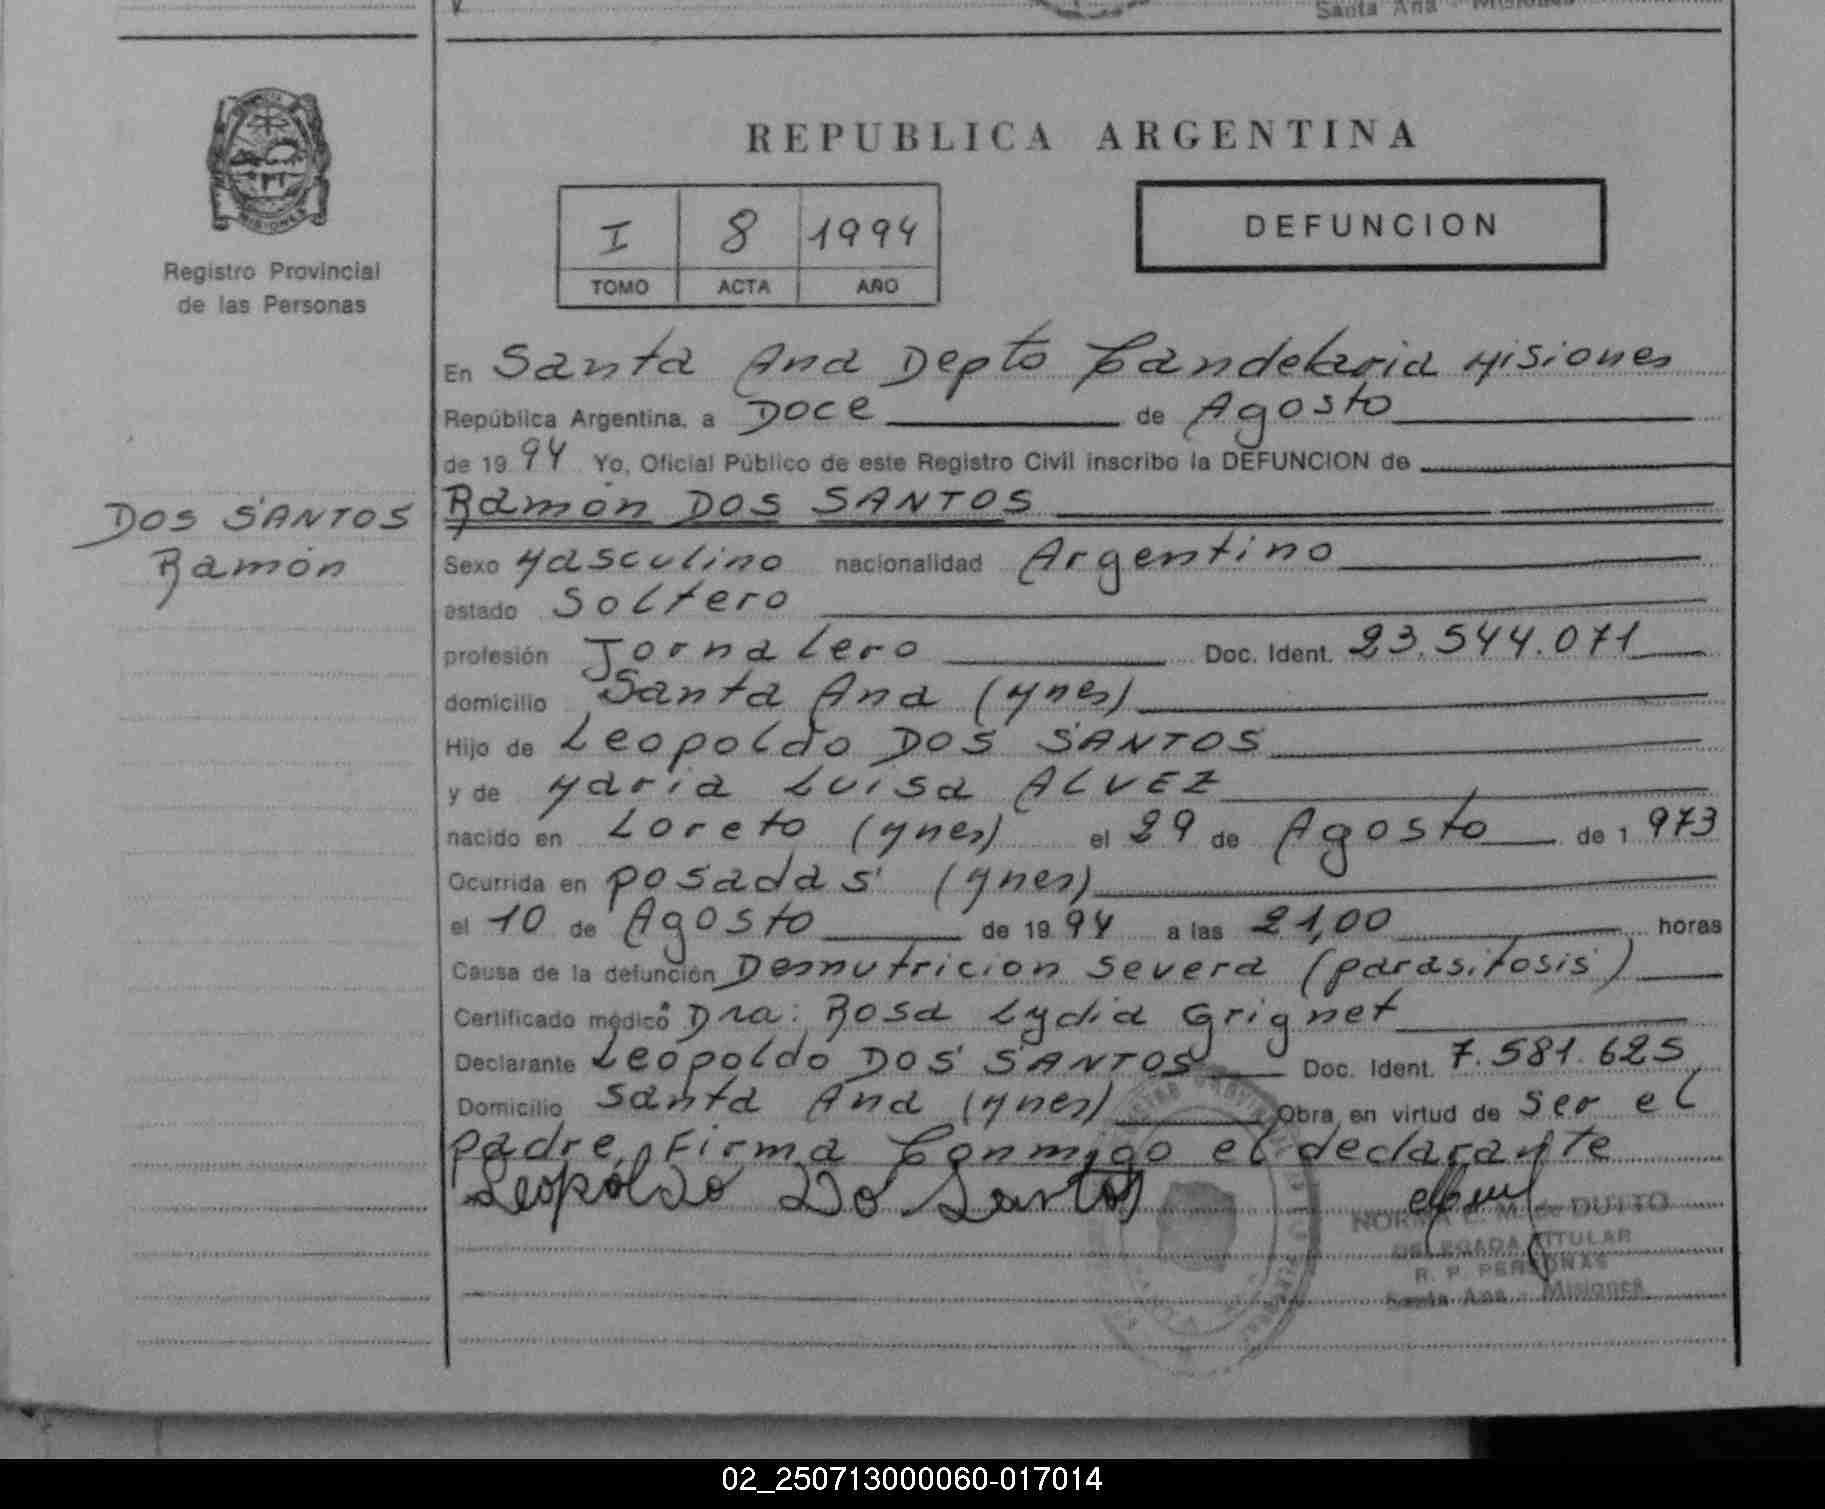 Santa Ana - Misiones
MISIONES
Registro Provincial
de las Personas
REPUBLICA ARGENTINA
I 8 1994
TOMO ACTA AÑO
DEFUNCION
En Santa Ana Depto Candelaria Misiones
República Argentina, a Doce de Agosto
de 19 94 Yo, Oficial Público de este Registro Civil inscribo la DEFUNCION de
DOS SANTOS
Ramón
Ramón DOS SANTOS
Sexo Masculino nacionalidad Argentino
estado Soltero
profesión Jornalero Doc. Ident. 23.544.071
domicilio Santa Ana (Mnes)
Hijo de Leopoldo DOS SANTOS
y de Maria Luisa ALVEZ
nacido en Loreto (Mnes) el 29 de Agosto de 1 973
Ocurrida en posadas (Mnes)
el 10 de Agosto de 19 94 a las 21,00 horas
Causa de la defunción Desnutricion severa (parasitosis)
Certificado médico Dra: Rosa Lydia Grignet
Declarante Leopoldo DOS SANTOS Doc. Ident. 7.581.625
Domicilio Santa Ana (Mnes) Obra en virtud de ser el
padre, Firma Conmigo el declarante
Leopoldo Do Santos
NORMA E. M. de DUTTO
DELEGADA TITULAR
R. P. PERSONAS
Santa Ana - Misiones
02_250713000060-017014